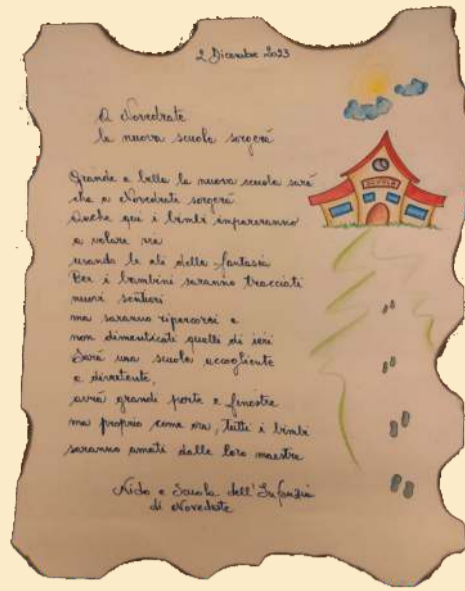 2 Dicembre 2023
A Novedrate
la nuova scuola sorgerà
SCUOLA
Grande e bella la nuova scuola sarà
che a Novedrate sorgerà
Anche qui i bimbi impareranno
a volare via
usando le ali della fantasia
Per i bambini saranno tracciati
nuovi sentieri
ma saranno ripercorsi e
non dimenticati quelli di ieri
Sarà una scuola accogliente
e divertente,
avrà grandi porte e finestre
ma proprio come ora, tutti i bimbi
saranno amati dalle loro maestre
Nido e Scuola dell'Infanzia
di Novedrate